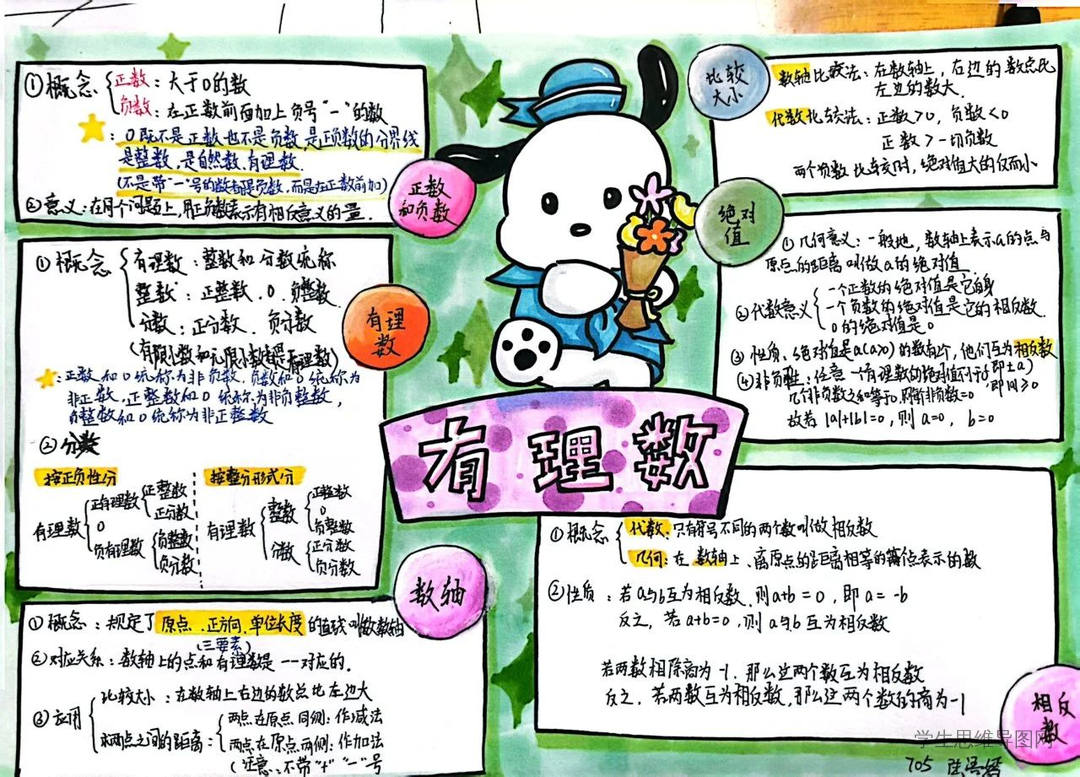 有理数
正数和负数
①概念
正数：大于0的数
负数：在正数前面加上负号"一"的数
：0既不是正数也不是负数，是正负数的分界线
是整数，是自然数，有理数.
(不是带"一"号的数都是负数，而是在正数前加)
②意义：在同一个问题上，用正负数表示有相反意义的量.
有理数
①概念
有理数：整数和分数统称
整数：正整数.0.负整数.
分数：正分数.负分数
(有限小数和无限小数都是有理数)
：正数和0统称为非负数，负数和0统称为
非正数，正整数和0统称为非负整数，
负整数和0统称为非正整数
②分数
按正负性分
有理数
正有理数
正整数
正分数
0
负有理数
负整数
负分数
按整分形式分
有理数
整数
正整数
0
负整数
分数
正分数
负分数
数轴
①概念：规定了原点.正方向.单位长度的直线叫做数轴
(三要素)
②对应关系：数轴上的点和有理数是一一对应的.
③应用
比较大小：在数轴上右边的数总比左边大
求两点之间的距离：
两点在原点同侧：作减法
两点在原点两侧：作加法
(注意：不带"+""一"号
比较大小
数轴比较法：在数轴上，右边的数总比
左边的数大.
代数比较法：正数>0，负数<0
正数>一切负数
两个负数比较时，绝对值大的反而小
绝对值
①几何意义：一般地，数轴上表示a的点与
原点的距离叫做a的绝对值
②代数意义
一个正数的绝对值是它自身
一个负数的绝对值是它的相反数.
0的绝对值是0
③性质、绝对值是a(a>0)的数有2个，他们互为相反数
即±a)
④非负性：任意一个有理数的绝对值
即|a|≥0
几个非负数之和等于0，则
非负数=0
故若|a|+|b|=0，则a=0，b=0
相反数
①概念
代数：只有符号不同的两个数叫做相反数
几何：在数轴上、离原点的距离相等的
表示的数
②性质：若a与b互为相反数.则a+b=0，即a=-b
反之，若a+b=0，则a与b互为相反数
若两数相除商为-1.那么这两个数互为相反数
反之，若两数互为相反数，那么这两个数的商为-1
学生思维导图网
705